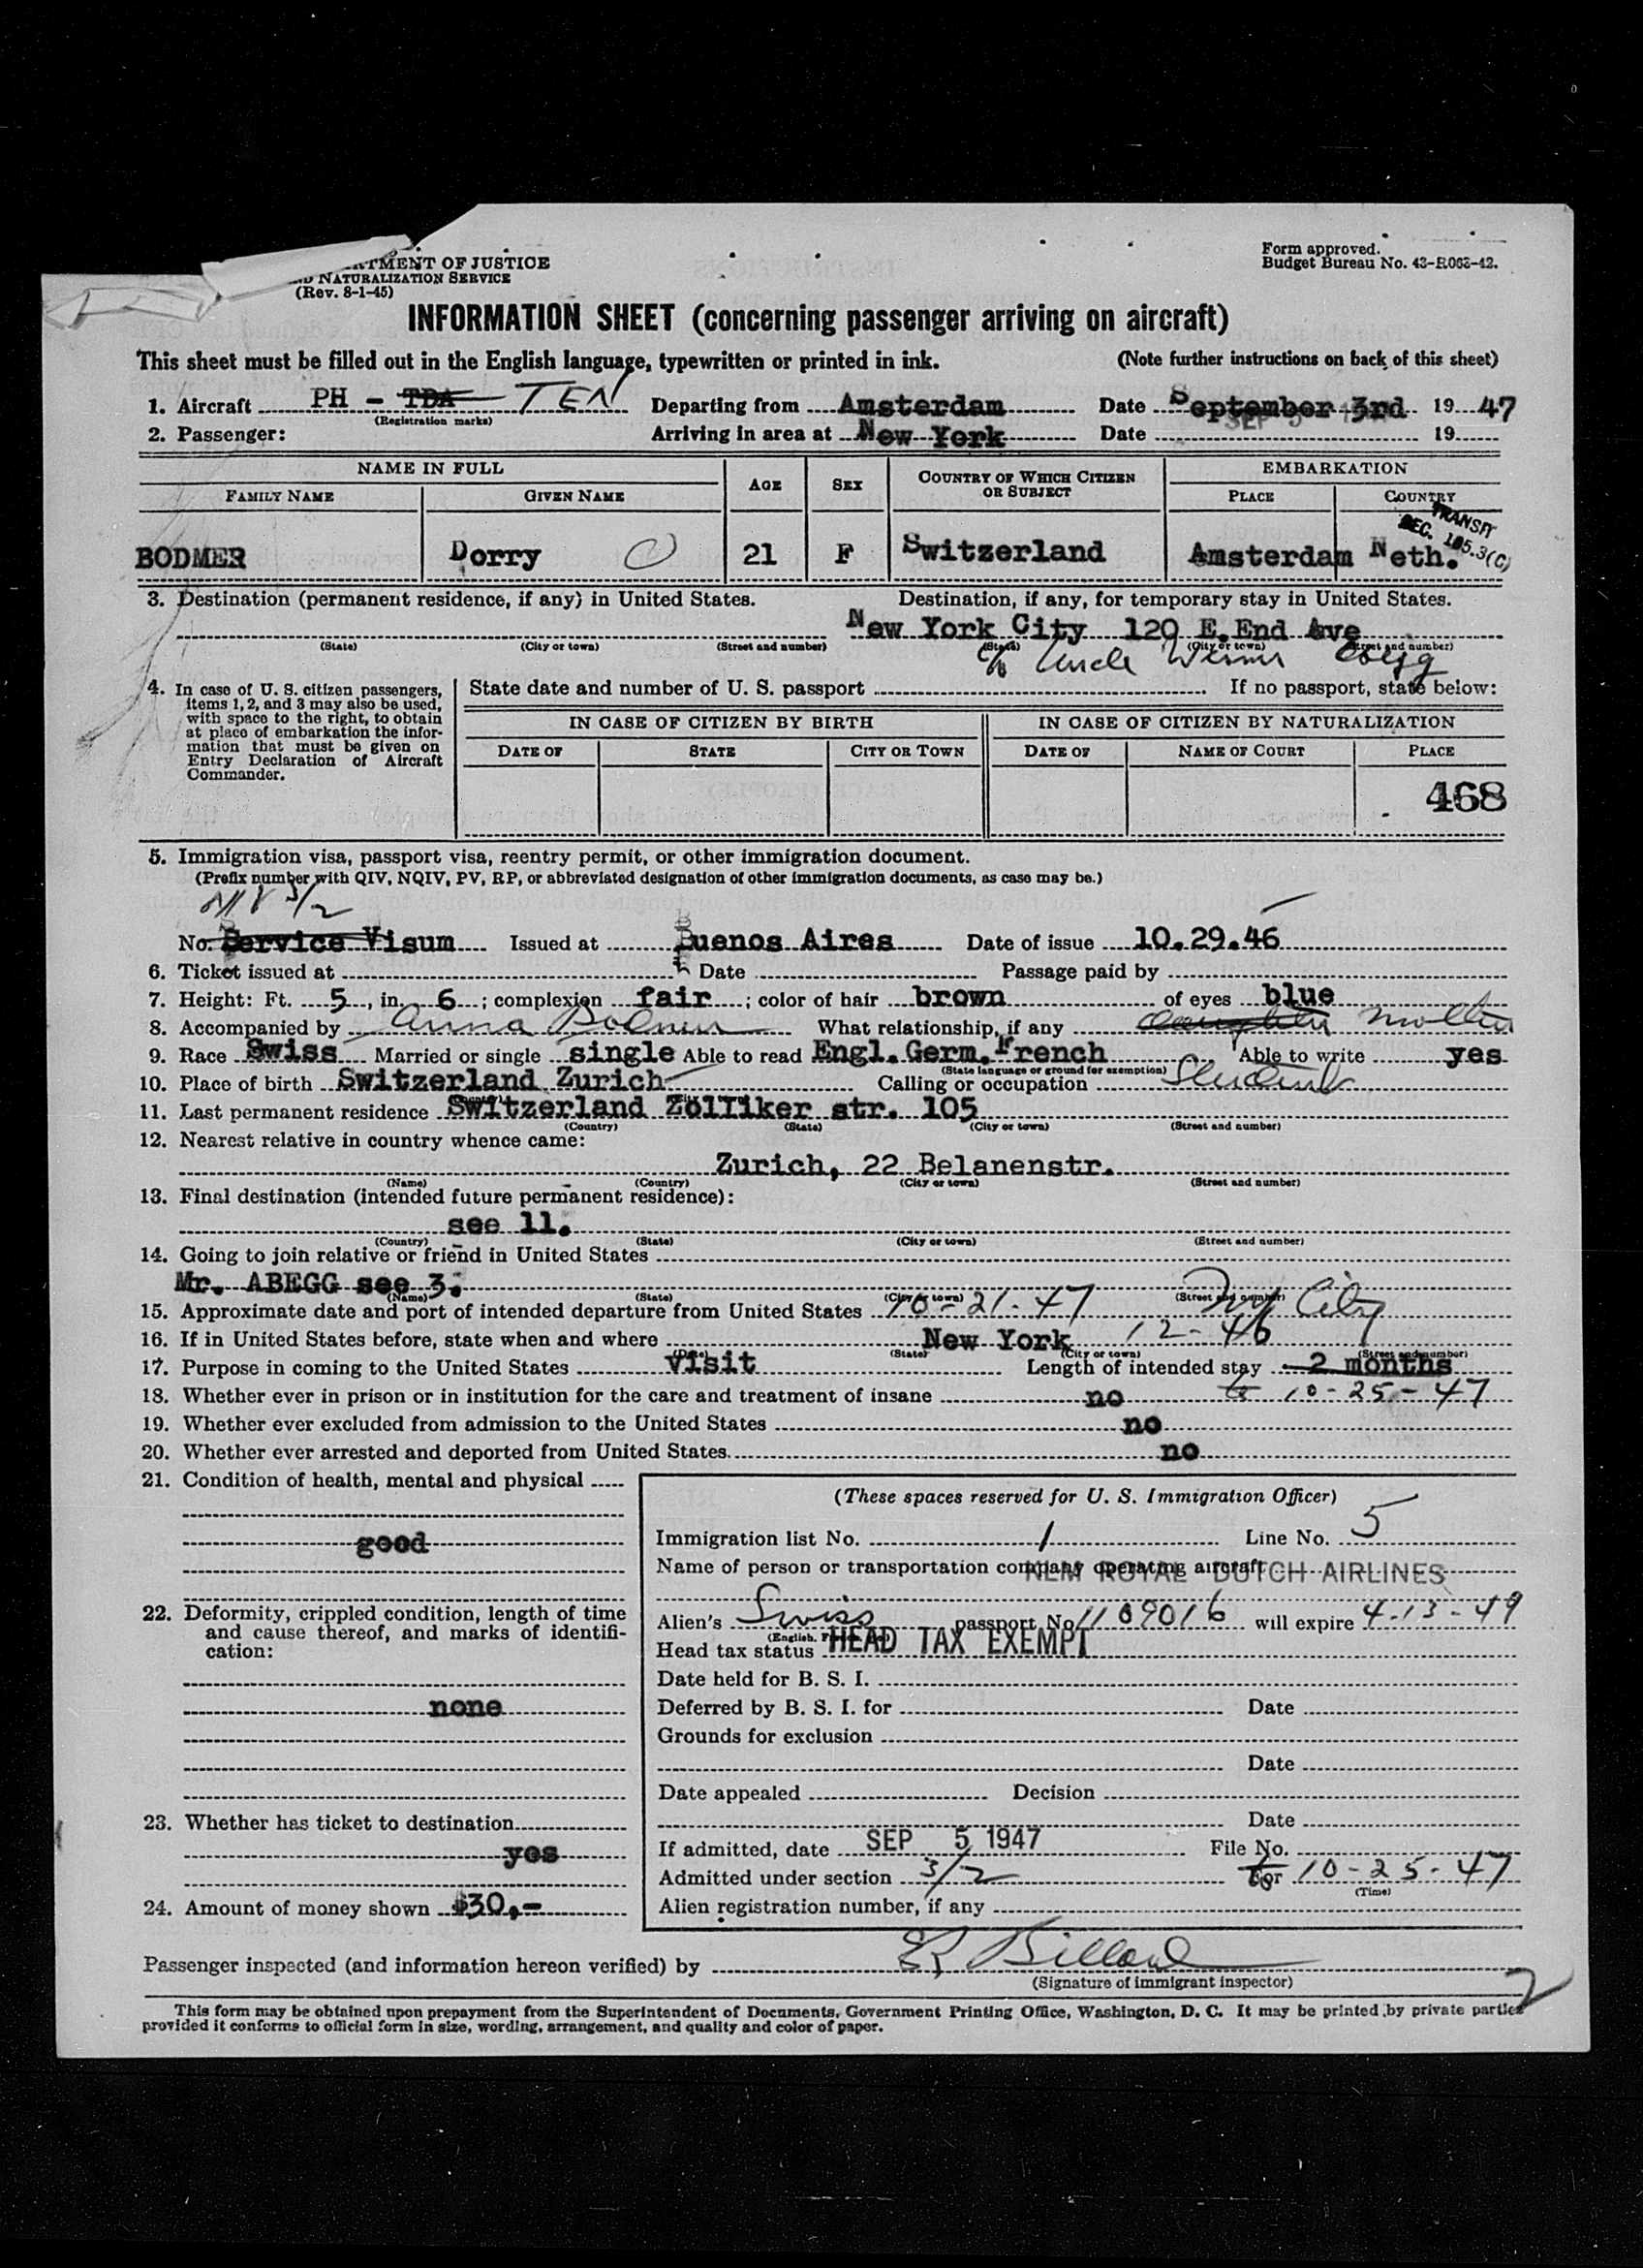 RTMENT OF JUSTICE
D NATURALIZATION SERVICE
(Rev. 8-1-45)
Form approved.
Budget Bureau No. 43-R063-42.
INFORMATION SHEET (concerning passenger arriving on aircraft)
This sheet must be filled out in the English language, typewritten or printed in ink. (Note further instructions on back of this sheet)
1. Aircraft PH - TDA TEN Departing from Amsterdam Date September 3rd 1947
(Registration marks)
2. Passenger: Arriving in area at New York Date SEP 19
NAME IN FULL AGE SEX COUNTRY OF WHICH CITIZEN OR SUBJECT EMBARKATION
FAMILY NAME GIVEN NAME PLACE COUNTRY
TRANSIT
SEC. 105.3(C)
BODMER Dorry 21 F Switzerland Amsterdam Neth.
3. Destination (permanent residence, if any) in United States. Destination, if any, for temporary stay in United States.
New York City 120 E.End Ave
(State) (City or town) (Street and number) (State) (City or town) (Street and number)
c/o Uncle Werner
4. In case of U. S. citizen passengers, items 1, 2, and 3 may also be used, with space to the right, to obtain at place of embarkation the information that must be given on Entry Declaration of Aircraft Commander.
State date and number of U. S. passport If no passport, state below:
IN CASE OF CITIZEN BY BIRTH IN CASE OF CITIZEN BY NATURALIZATION
DATE OF STATE CITY OR TOWN DATE OF NAME OF COURT PLACE
468
5. Immigration visa, passport visa, reentry permit, or other immigration document.
(Prefix number with QIV, NQIV, PV, RP, or abbreviated designation of other immigration documents, as case may be.)
3/2
No. Service Visum Issued at Buenos Aires Date of issue 10.29.46
6. Ticket issued at Date Passage paid by
7. Height: Ft. 5, in. 6; complexion fair; color of hair brown of eyes blue
8. Accompanied by Anna Bodmer What relationship, if any daughter mother
9. Race Swiss Married or single single Able to read Engl.Germ.French Able to write yes
(State language or ground for exemption)
10. Place of birth Switzerland Zurich Calling or occupation Student
11. Last permanent residence Switzerland Zolliker str. 105
(Country) (State) (City or town) (Street and number)
12. Nearest relative in country whence came:
Zurich, 22 Belanenstr.
(Name) (Country) (City or town) (Street and number)
13. Final destination (intended future permanent residence):
see 11.
(Country) (State) (City or town) (Street and number)
14. Going to join relative or friend in United States
Mr. ABEGG see 3.
(Name) (State) (City or town) (Street and number)
15. Approximate date and port of intended departure from United States 10-21-47 Ny City
16. If in United States before, state when and where New York 12-46
(Date) (State) (City or town) (Street and number)
17. Purpose in coming to the United States Visit Length of intended stay 2 months
18. Whether ever in prison or in institution for the care and treatment of insane no to 10-25-47
19. Whether ever excluded from admission to the United States no
20. Whether ever arrested and deported from United States no
21. Condition of health, mental and physical
good
22. Deformity, crippled condition, length of time and cause thereof, and marks of identification:
none
23. Whether has ticket to destination
yes
24. Amount of money shown $30,-
(These spaces reserved for U. S. Immigration Officer)
Immigration list No. 1 Line No. 5
Name of person or transportation company operating aircraft KLM ROYAL DUTCH AIRLINES
Alien's Swiss passport No. 1109016 will expire 4-13-49
Head tax status HEAD TAX EXEMPT
Date held for B. S. I.
Deferred by B. S. I. for Date
Grounds for exclusion
Date
Date appealed Decision
Date
If admitted, date SEP 5 1947 File No.
Admitted under section 3/2 For to 10-25-47
(Time)
Alien registration number, if any
Passenger inspected (and information hereon verified) by
(Signature of immigrant inspector)
2
This form may be obtained upon prepayment from the Superintendent of Documents, Government Printing Office, Washington, D. C. It may be printed by private parties
provided it conforms to official form in size, wording, arrangement, and quality and color of paper.